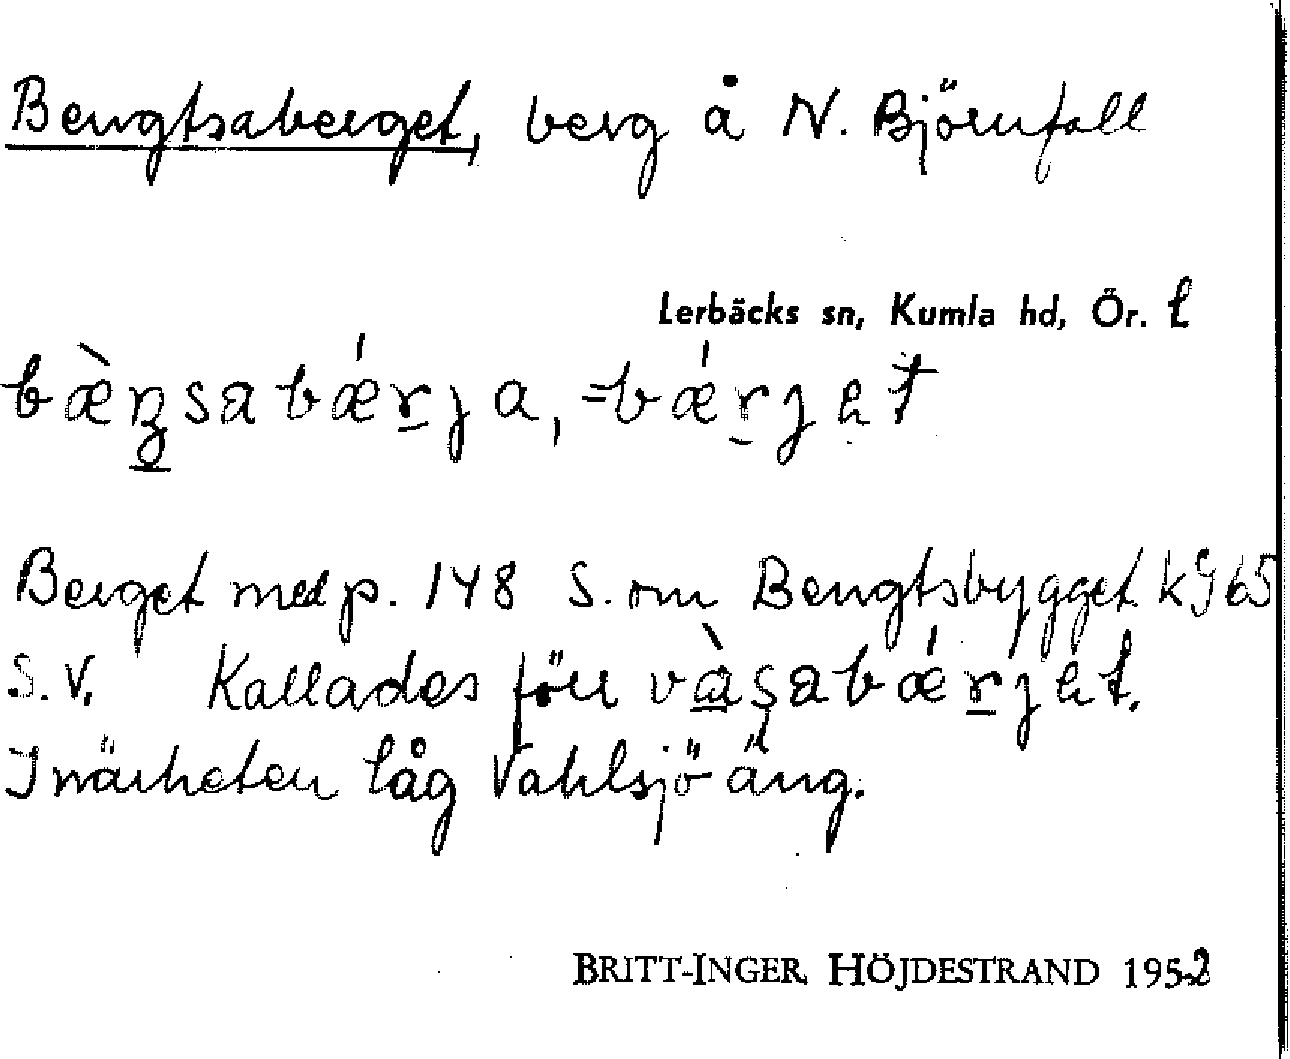 Bengtsaberget, berg å N. Björnfall
Lerbäcks sn, Kumla hd, Ör. l
bæ̀ŋsabǽrja, =bǽrjet
Berget med p. 148 S. om Bengtsbygget kG 65
S.V. Kallades förr vàsabǽrjet.
I närheten låg Vahlsjöäng.
BRITT-INGER HÖJDESTRAND 1952